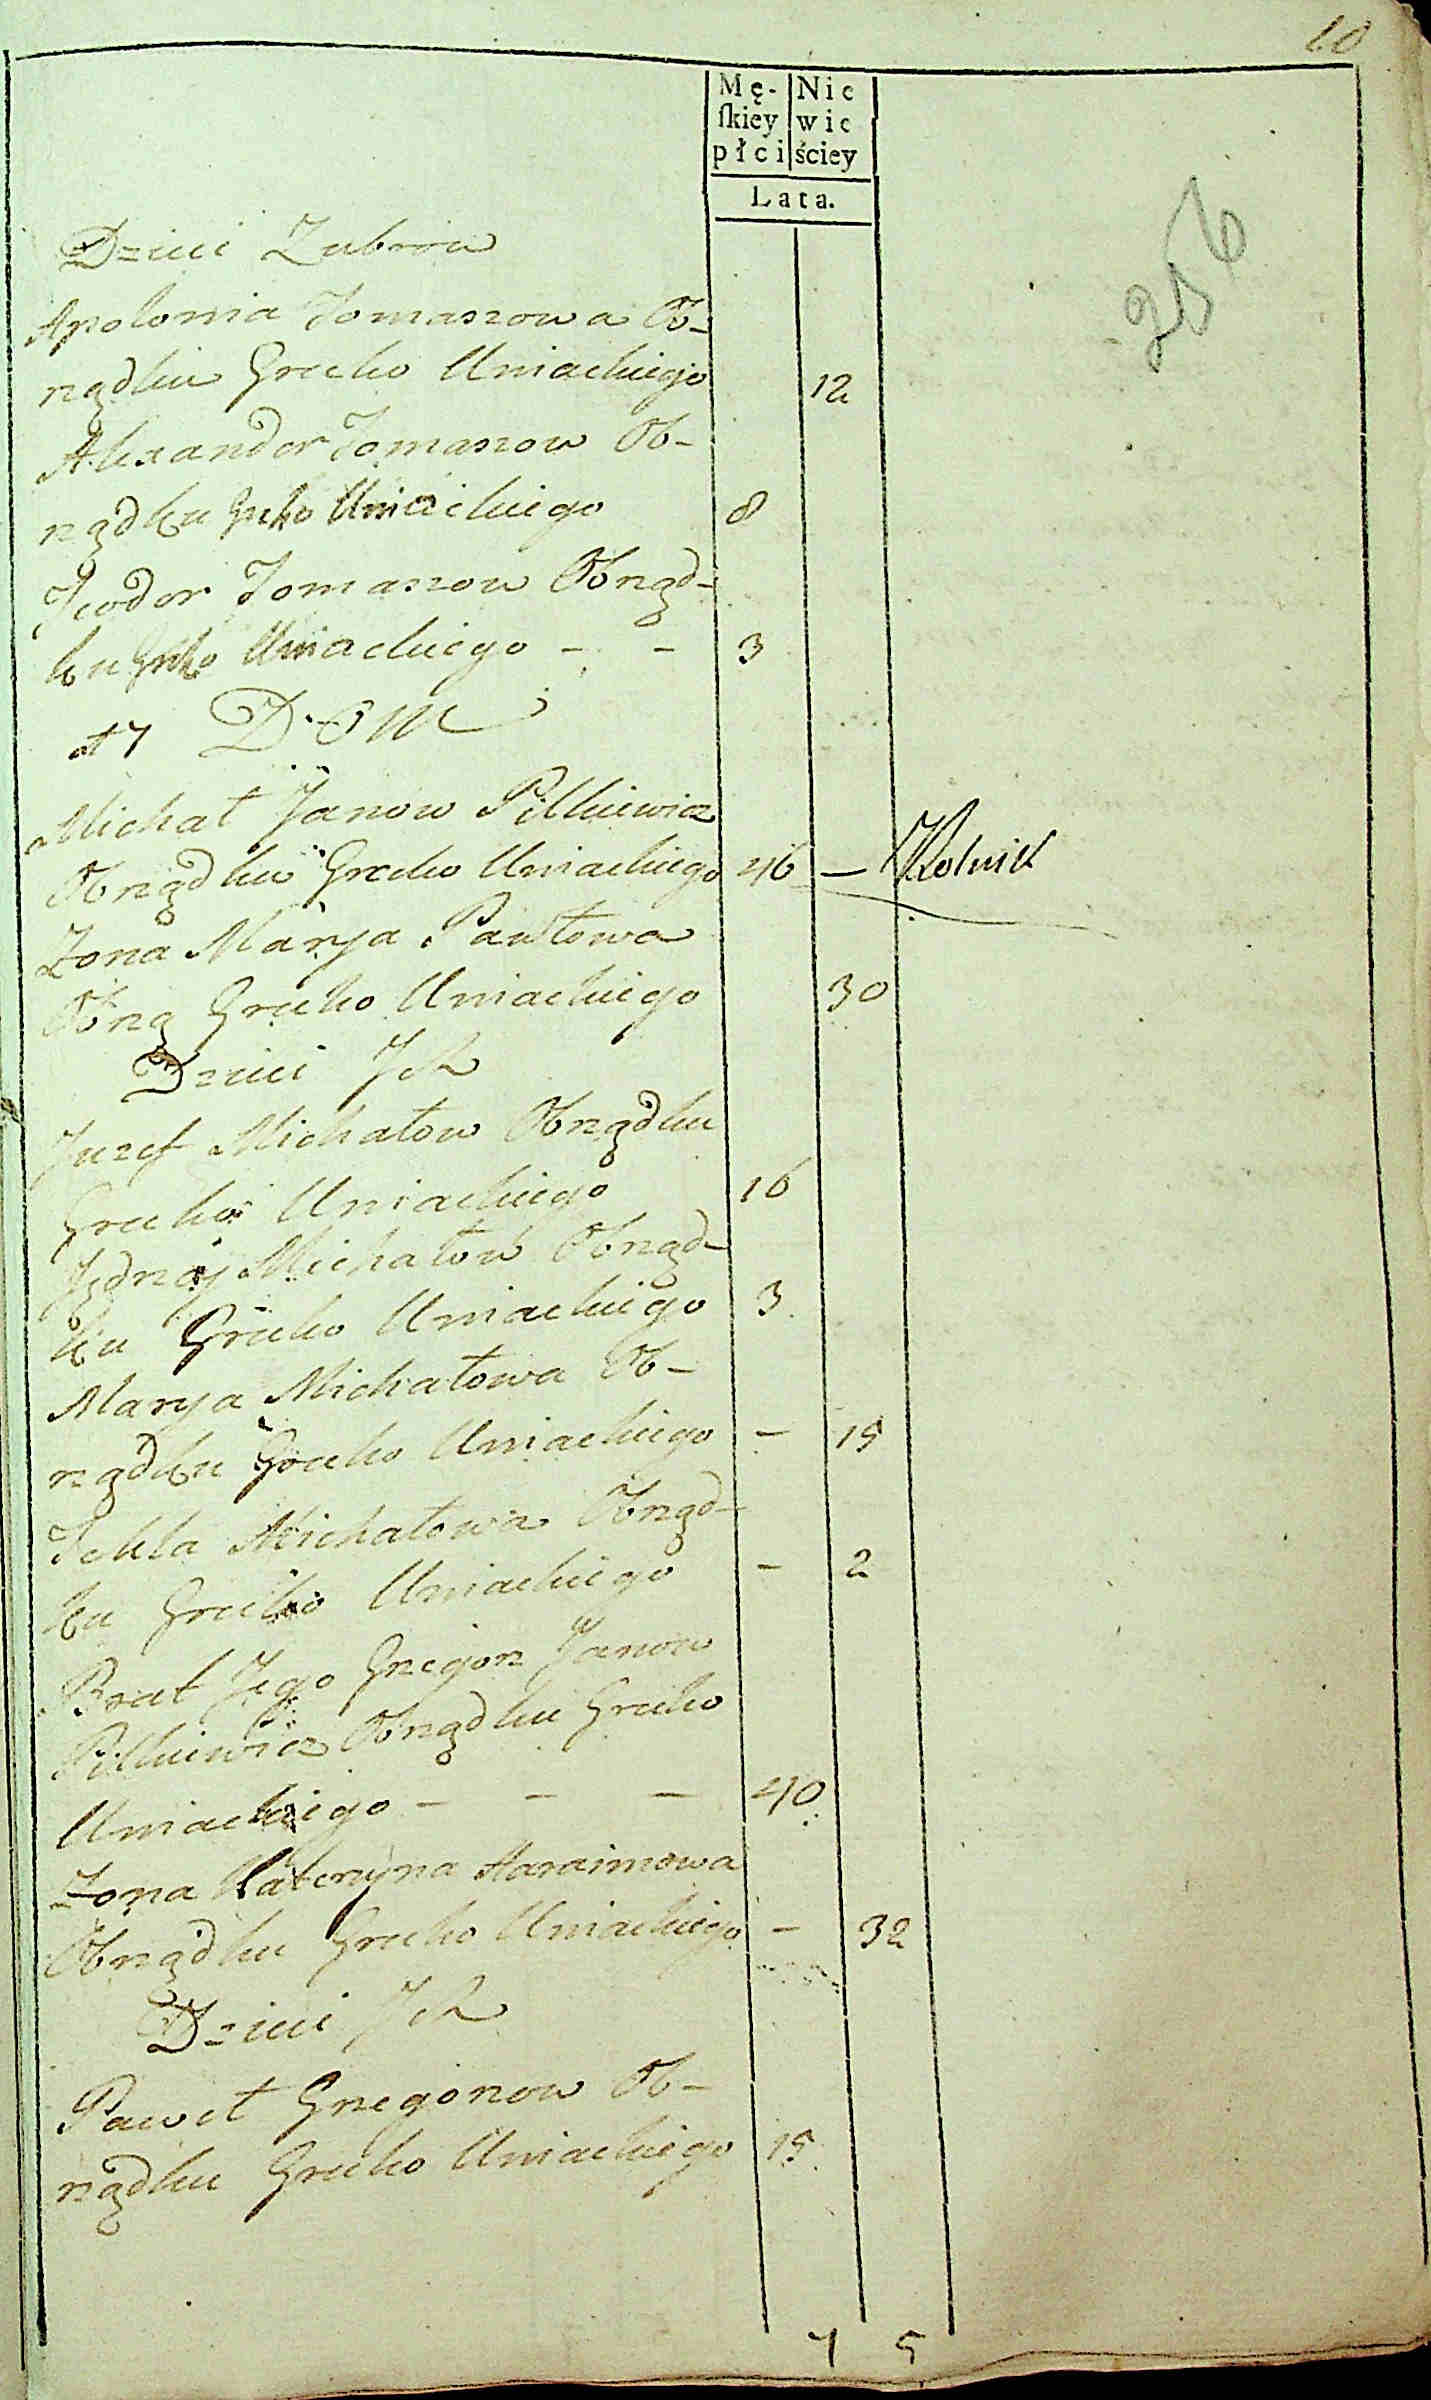 10
Mę- Nie
ſkiey wie
płci ściey
Lata.
Dzieci Zubrow
Apolonia Tomaszowa Ob-
rządku Greko Uniackiego 12
Alexander Tomaszow Ob-
rządku Greko Uniackiego 8
Teodor Tomaszow Obrząd-
ku Greko Uniackiego - - 3
17 DOM
Michał Janow Pilkiewicz
Obrządku Greko Uniackiego 46 — Rolnik
Zona Marya Pawłowa
Obrzą Greko Uniackiego 30
Dzieci Ich
Juzef Michałow Obrządku
Greko Uniackiego 16
Jędrzej Michałow Obrząd-
ku Greko Uniackiego 3
Marya Michałowa Ob-
rządku Greko Uniackiego - 15
Tekla Michałowa Obrząd-
ku Greko Uniackiego - 2
Brat Jego Grzegorz Janow
Pilkiewicz Obrządku Greko
Uniackiego - - - 40
Zona Katerzyna Haraimowa
Obrządku Greko Uniackiego - 32
Dzieci Ich
Paweł Grzegorzow Ob-
rządku Greko Uniackiego 15
7 5